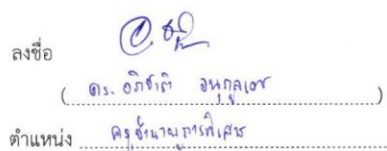 ลงชื่อ
( ดร. อภิชาติ อนุกูลเวช )
ตำแหน่ง ครูชำนาญการพิเศษ